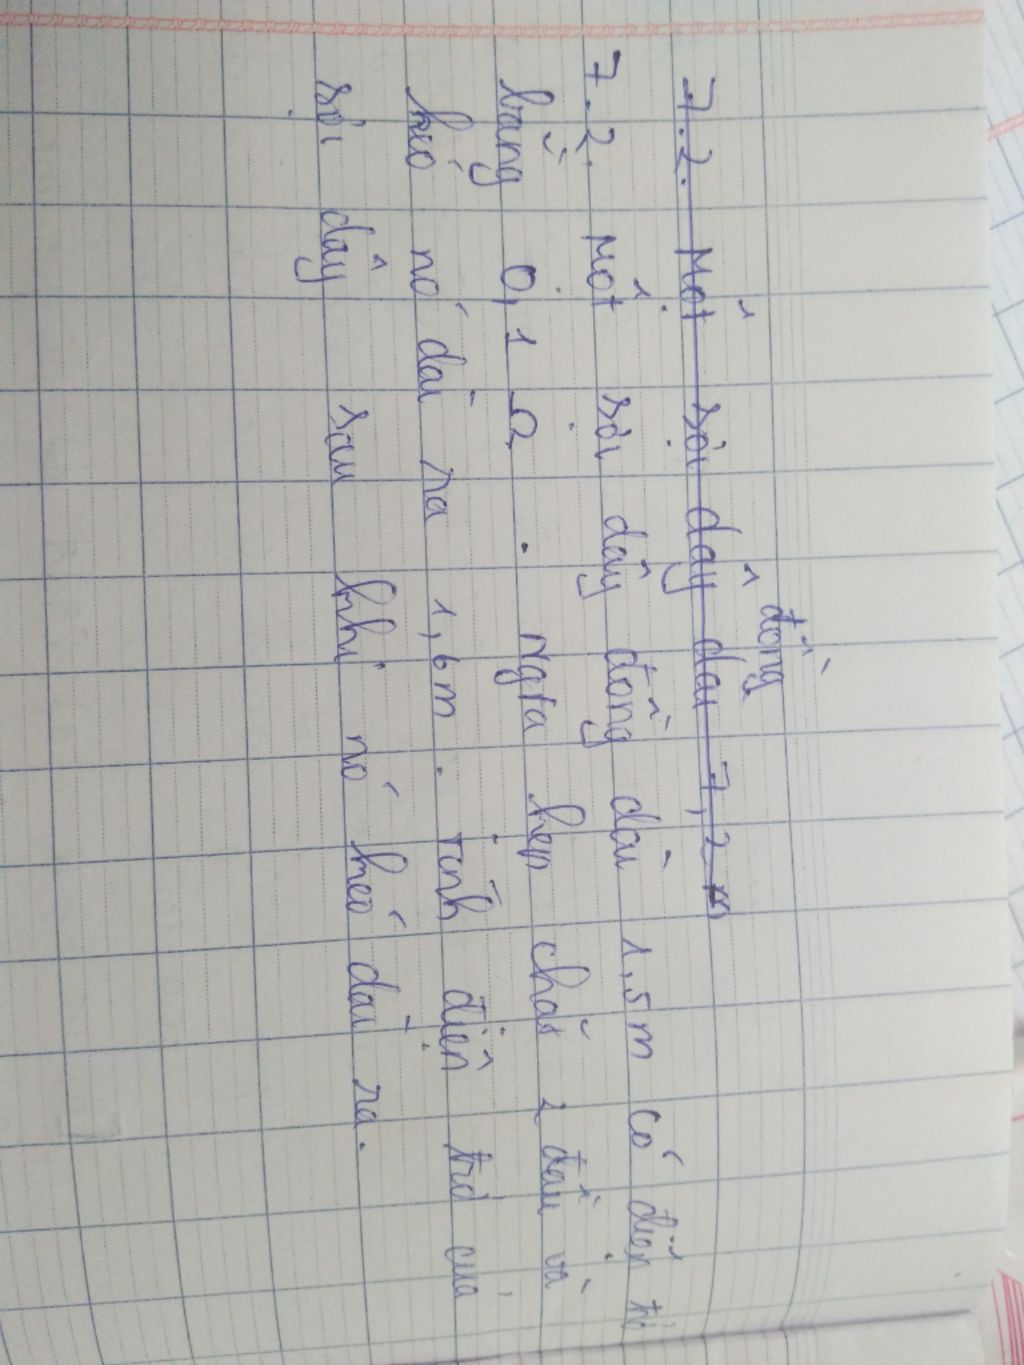 đồng
7.2. Một sợi dây dài 7,2 m
7.2. Một sợi dây đồng dài 1,5m có điện trở
bằng 0,1 Ω. Ngta kẹp chặt 2 đầu và
kéo nó dài ra 1,6m. Tính điện trở của
sợi dây sau khi nó kéo dài ra.